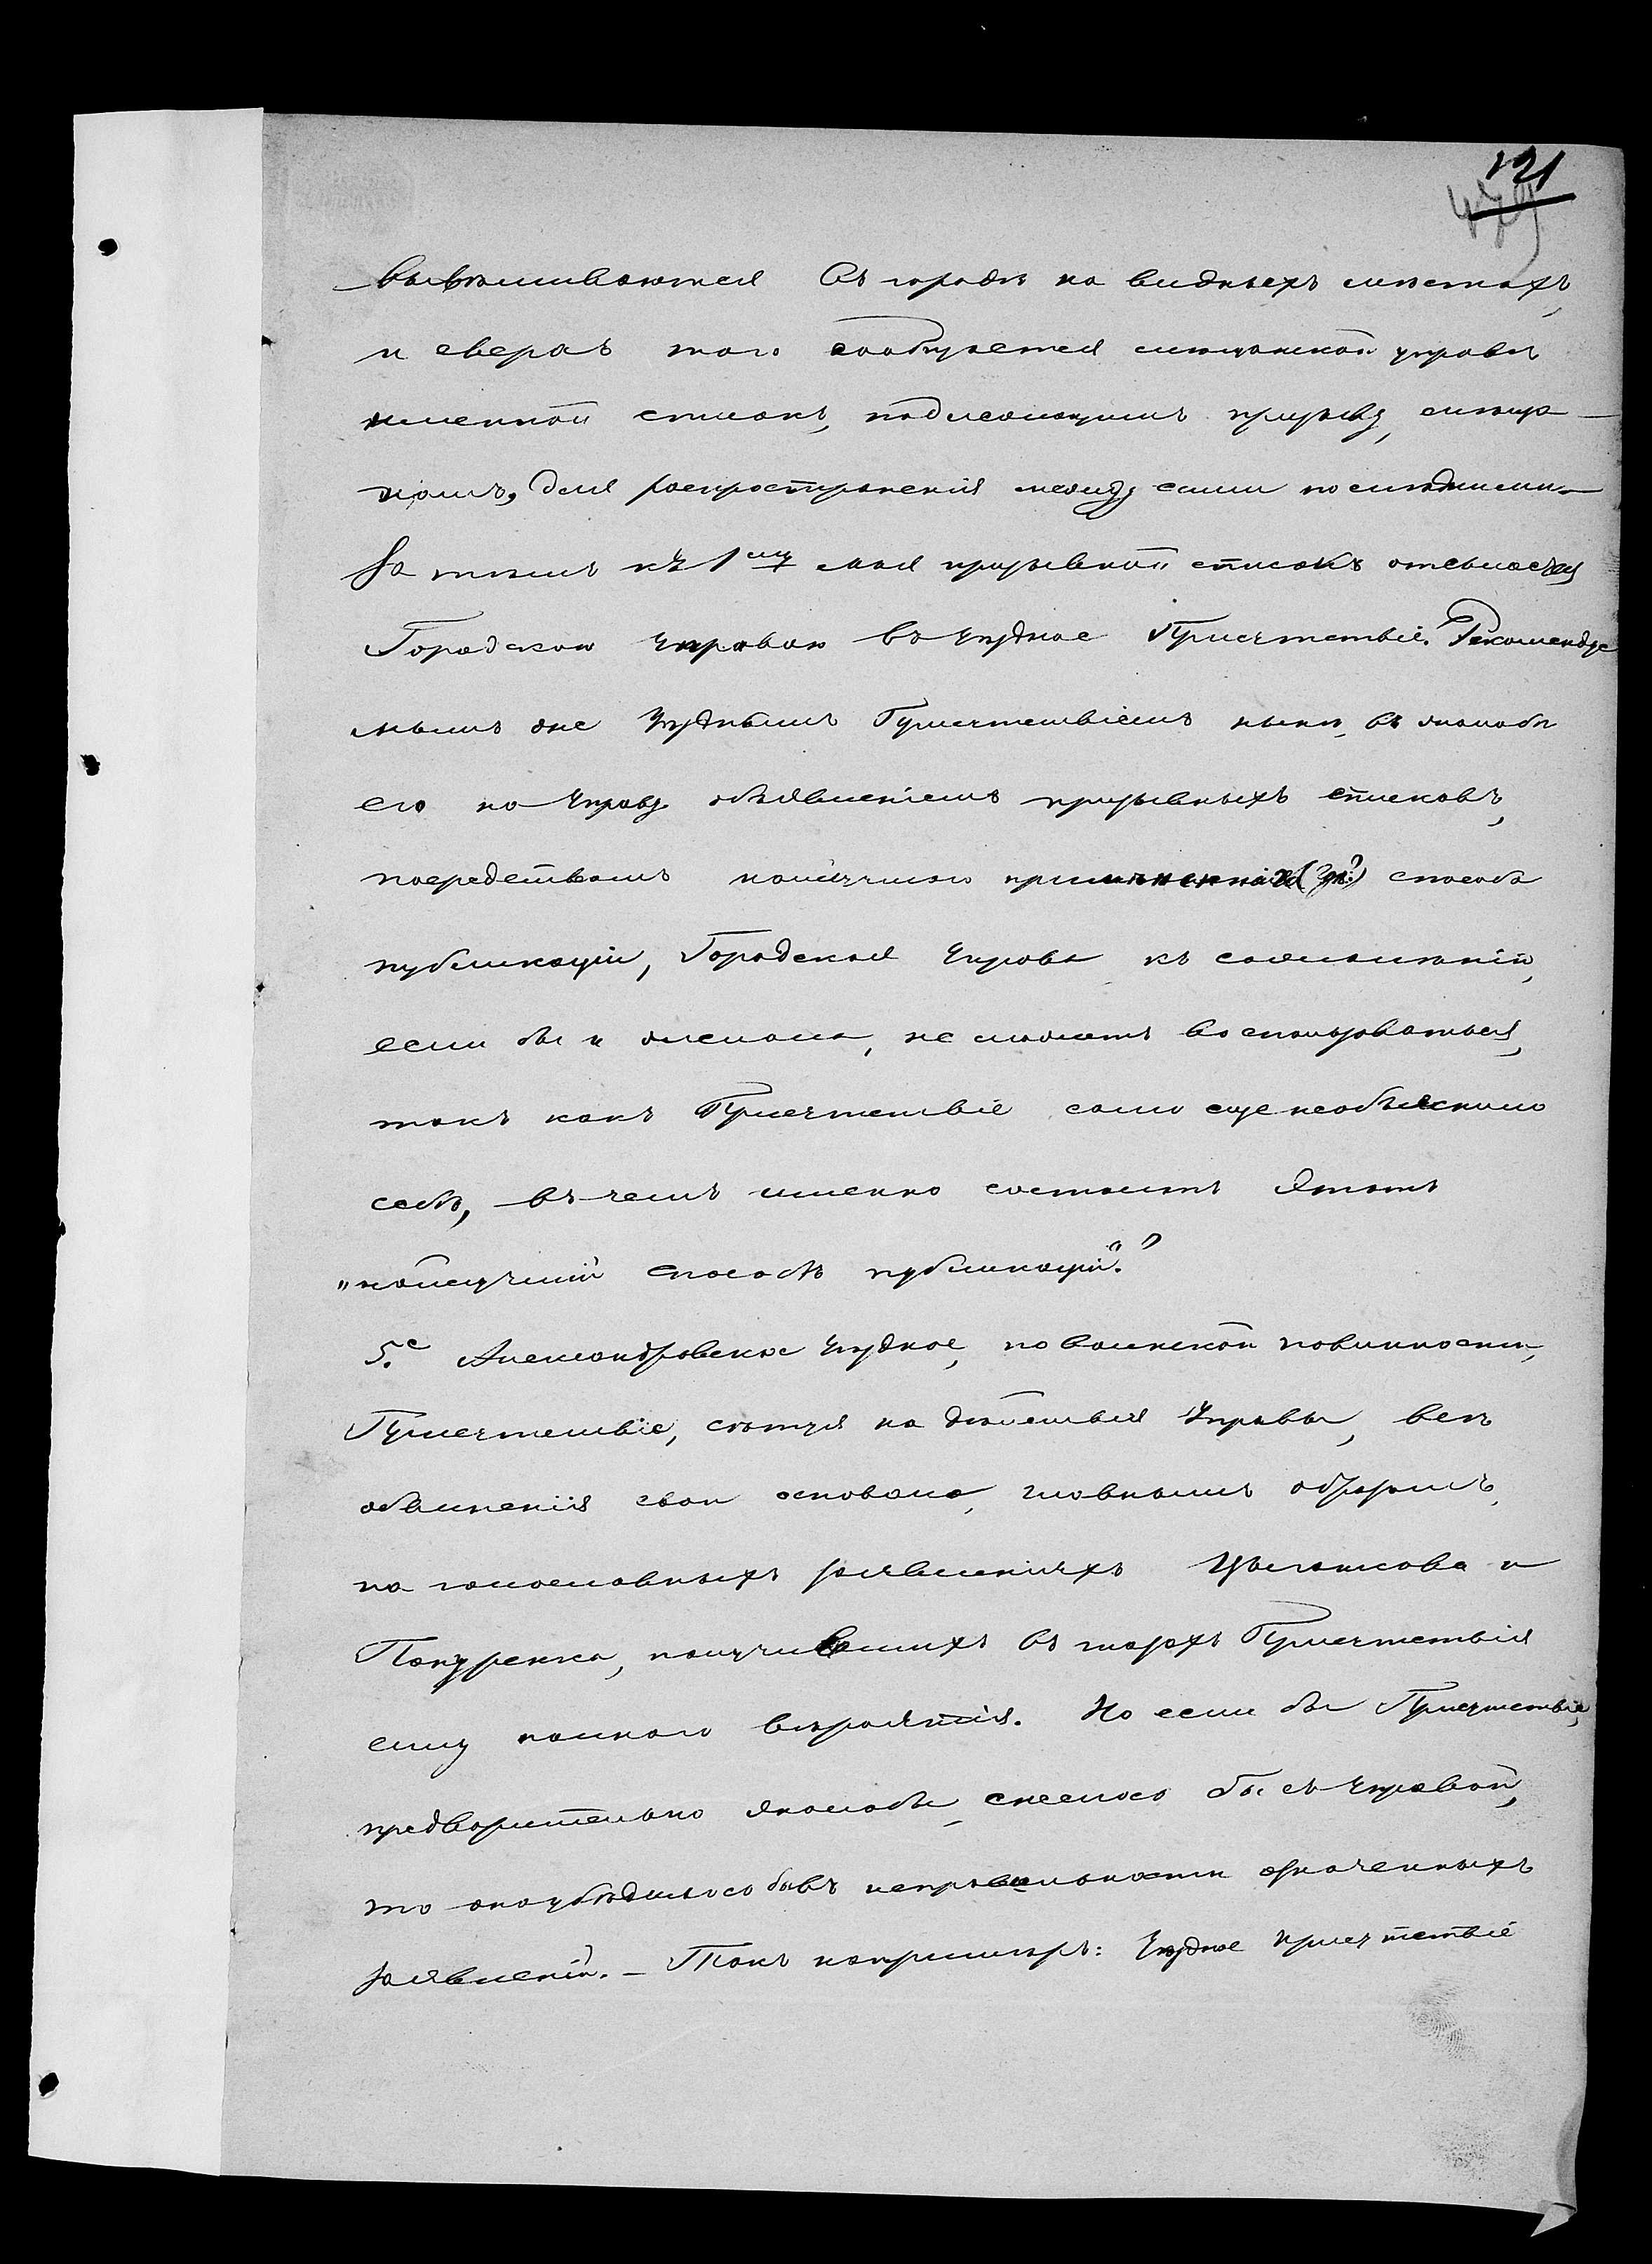 121
479
вывѣшиваются въ городѣ на видныхъ мѣстахъ,
и сверхъ того сообщается мѣщанской управѣ
именной списокъ, подлежащимъ призыву, мѣща-
намъ, для распространенія между сими послѣдними.—
За тѣмъ къ 1му мая призывной списокъ отсылается
Городскою Управою въ Уѣздное Присутствіе. Рекомендуе
мымъ же Уѣзднымъ Присутствіемъ нынѣ, въ жалобѣ
его на Управу объявленіемъ призывныхъ списковъ,
посредствомъ наилучшаго примѣненія (?) способа
публикаціи, Городская Управа къ сожалѣнію,
если бы и желала, не можетъ воспользоваться,
такъ какъ Присутствіе само еще необъяснило
себѣ, въ чемъ именно состоитъ этотъ
„наилучшій способъ публикаціи"?
5.е Александровское Уѣздное, по воинской повинности,
Присутствіе, сѣтуя на дѣйствія Управы, всѣ
обвиненія свои основало, главнымъ образомъ,
на голословныхъ заявленіяхъ Цыганкова и
Пануренка, получившихъ въ глазахъ Присутствія
силу полнаго вѣроятія. Но если бы Присутствіе,
предварительно жалобы, снеслось бы съ Управой,
то оно убѣдилось бы въ неправильности означенныхъ
заявленій.— Такъ напримѣръ: Уѣздное Присутствіе